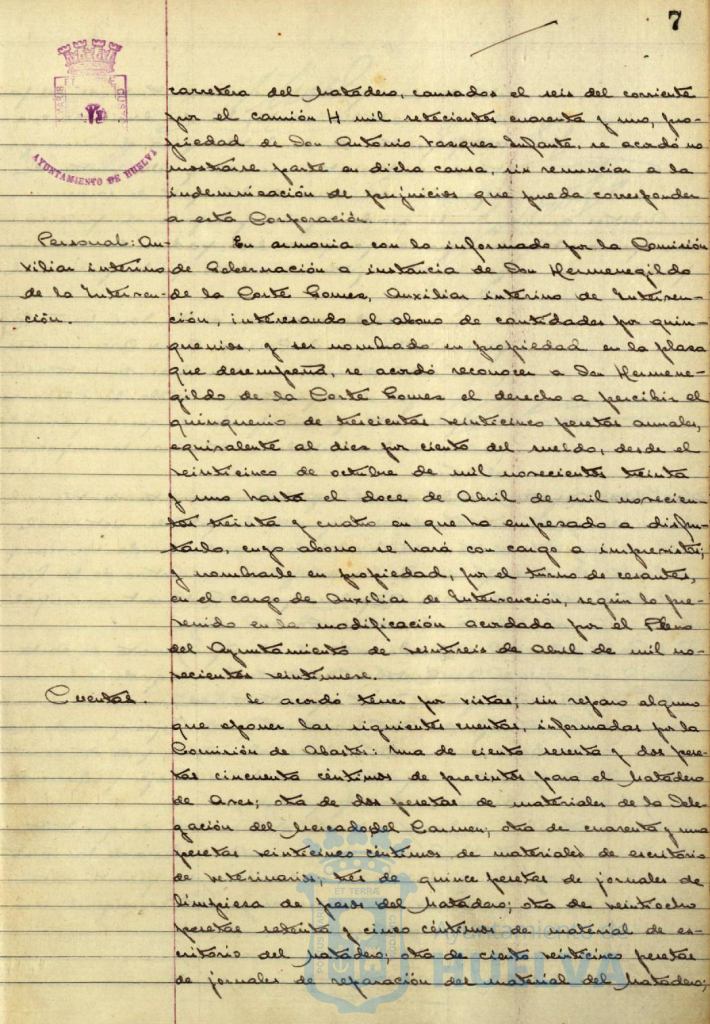 7
AYUNTAMIENTO DE HUELVA
carretera del Matadero, causados el seis del corriente
por el camión H mil setecientos cuarenta y uno, pro-
piedad de Don Antonio Vazquez Infante, se acordó no
mostrarse parte en dicha causa, sin renunciar a la
indemnización de perjuicios que pueda corresponder
a esta Corporación.
Personal: Au-
xiliar interino
de la Interven-
ción.
En armonia con lo informado por la Comisión
de Gobernación a instancia de Don Hermenegildo
de la Corte Gomez, Auxiliar interino de Interven-
ción, interesando el abono de cantidades por quin-
quenios y ser nombrado en propiedad en la plaza
que desempeña, se acordó reconocer a Don Hermene-
gildo de la Corte Gomez el derecho a percibir el
quinquenio de trescientas veinticinco pesetas anuales,
equivalente al diez por ciento del sueldo, desde el
veinticinco de octubre de mil novecientos treinta
y uno hasta el doce de Abril de mil novecien-
tos treinta y cuatro en que ha empezado a disfru-
tarlo, cuyo abono se hará con cargo a imprevistos;
y nombrarle en propiedad, por el turno de cesantes,
en el cargo de Auxiliar de Intervención, según lo pre-
venido en la modificación acordada por el Pleno
del Ayuntamiento de veintiseis de Abril de mil no-
vecientos veintinueve.
Cuentas.
Se acordó tener por vistas, sin reparo alguno
que oponer las siguientes cuentas, informadas por la
Comisión de Abastos: Una de ciento sesenta y dos pese-
tas cincuenta céntimos de precintos para el Matadero
de Aves; otra de dos pesetas de materiales de la Dele-
gación del Mercado del Carmen; otra de cuarenta y una
pesetas veinticinco céntimos de materiales de escritorio
de veterinarios; tres de quince pesetas de jornales de
limpieza de pesos del Matadero; otra de veintiocho
pesetas setenta y cinco céntimos de material de es-
critorio del Matadero; otra de ciento veinticinco pesetas
de jornales de reparación del material del Matadero;
ET TERRA
HUELVA